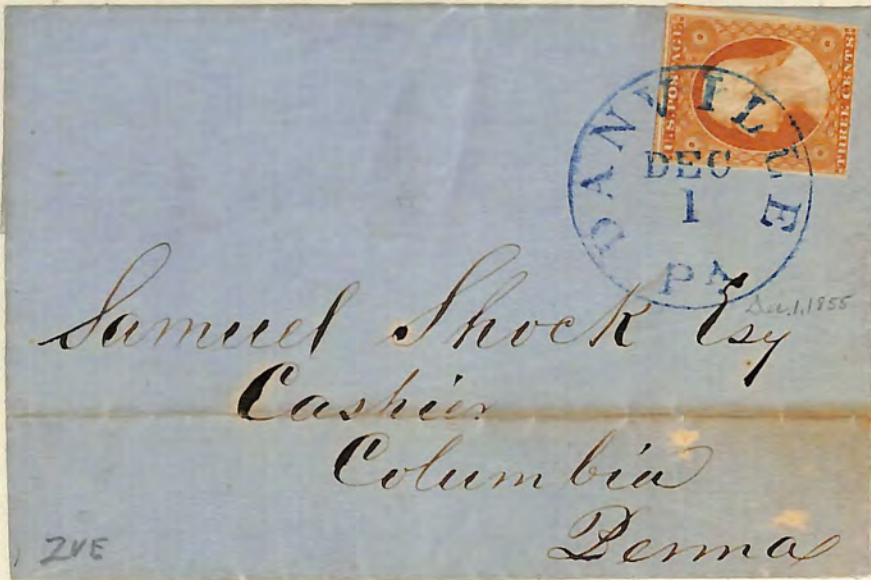 U.S. POSTAGE
THREE CENTS
DANVILLE
DEC
1
PA
Dec. 1, 1855
Samuel Shock Esq
Cashier
Columbia
Penna
ZVE